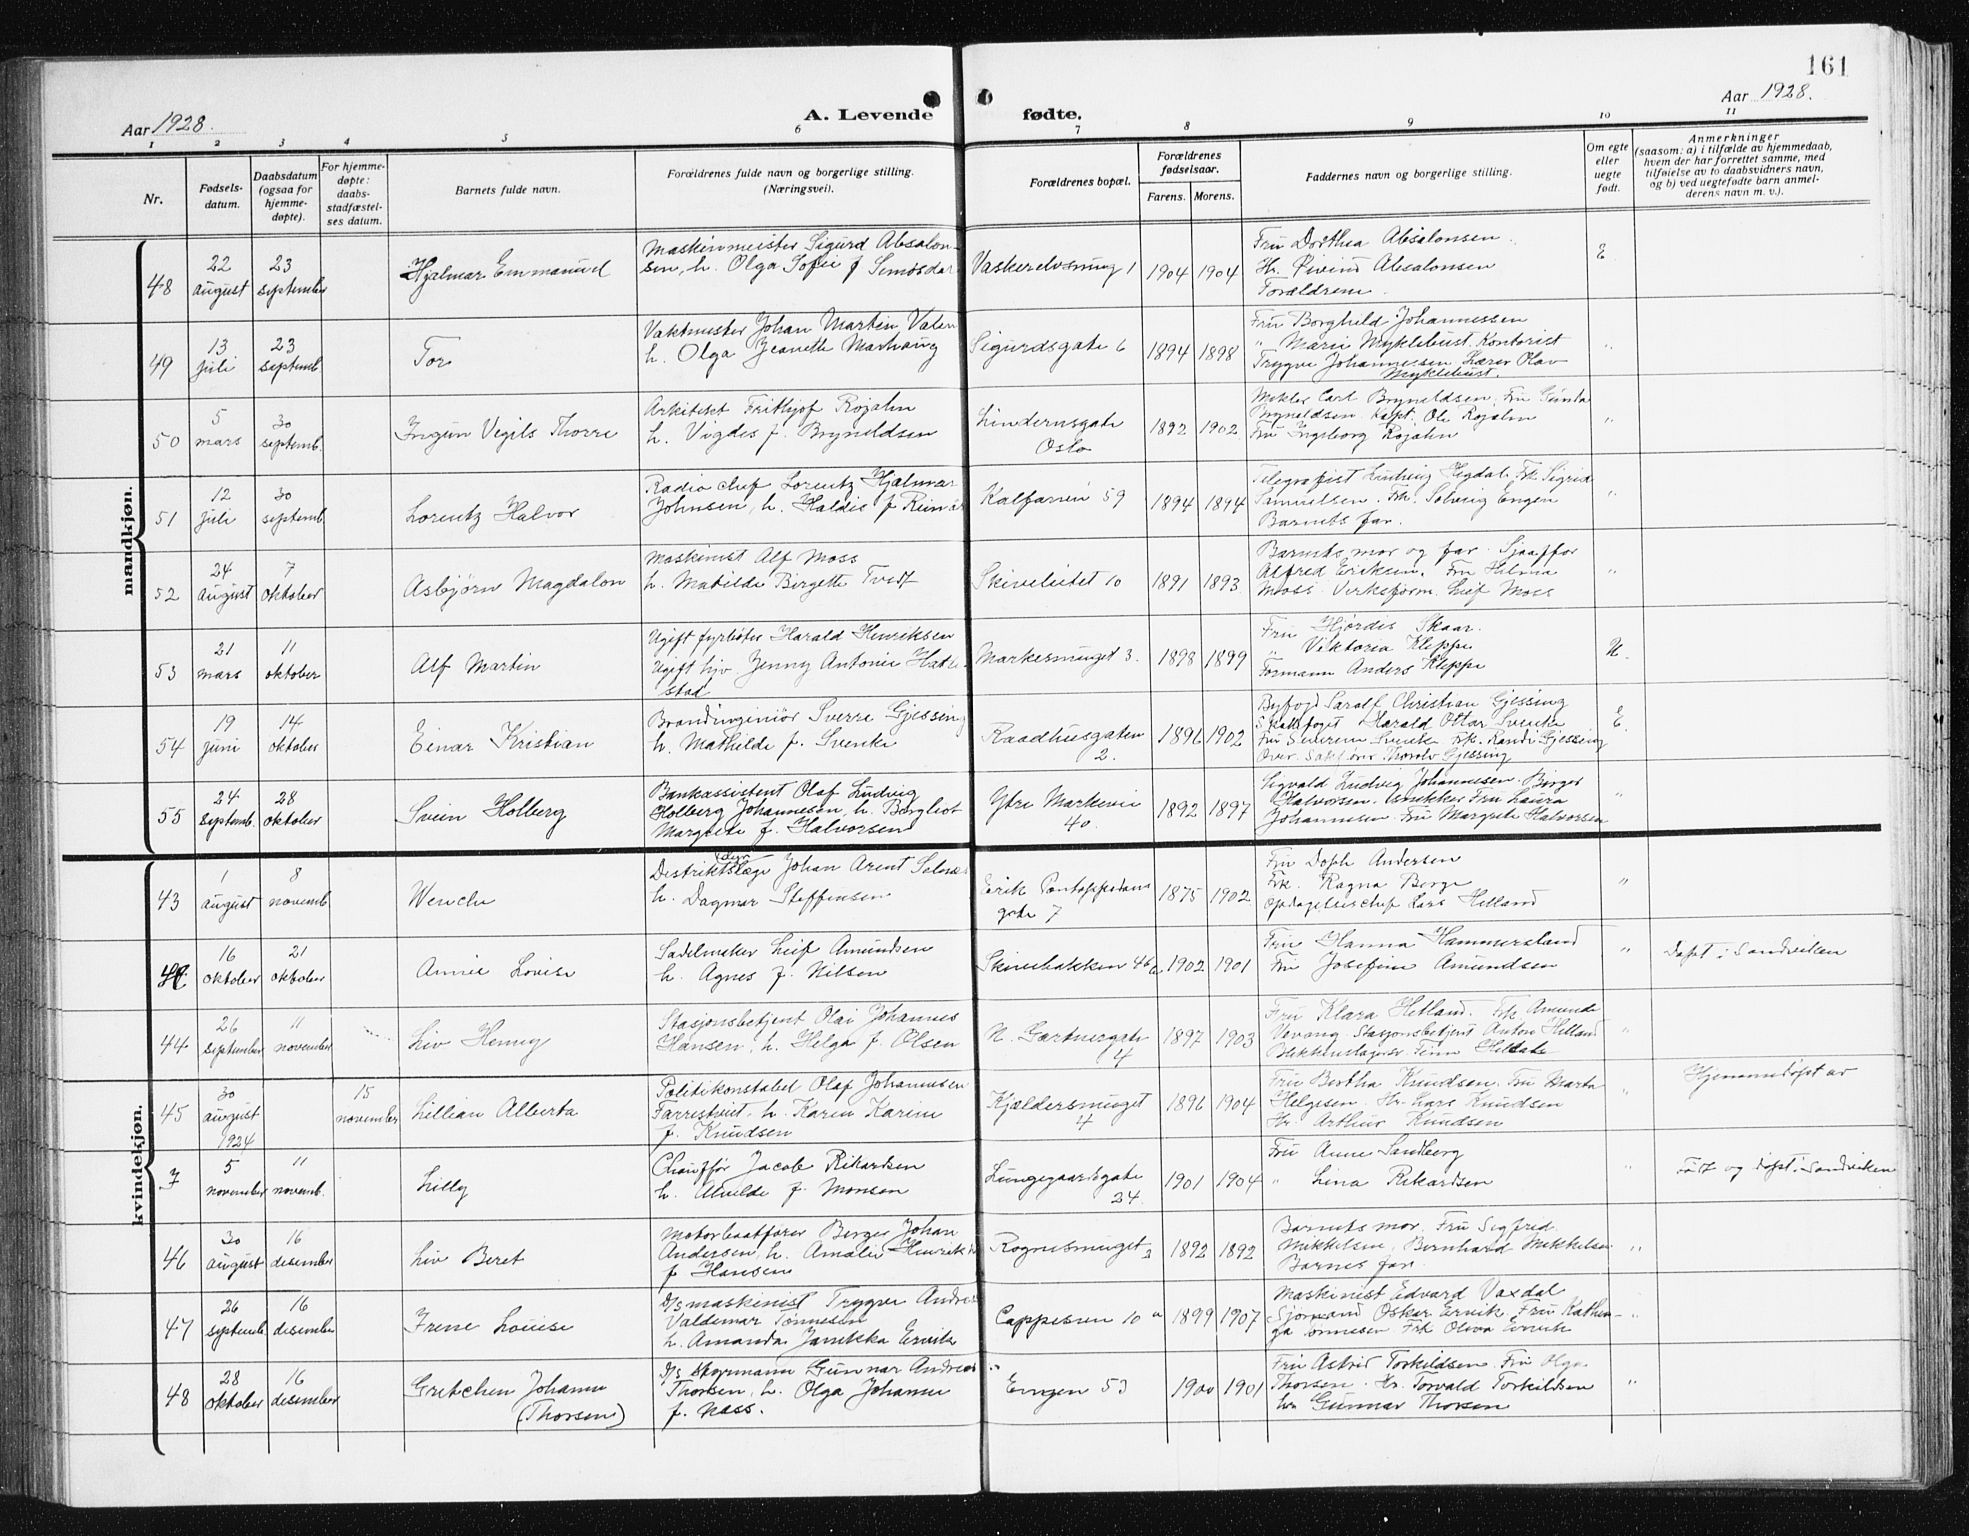 161
Aar 1928.
A. Levende fødte.
Aar 1928.
1 2 3 4 5 6 7 8 9 10 11
Nr.
Fødsels-
datum.
Daabsdatum
(ogsaa for
hjemme-
døpte).
For hjemme-
døpte:
daabs-
stadfæstel-
ses datum.
Barnets fulde navn.
Forældrenes fulde navn og borgerlige stilling.
(Næringsvei).
Forældrenes bopæl.
Forældrenes
fødselsaar.
Farens. Morens.
Faddernes navn og borgerlige stilling.
Om egte
eller
uegte
født.
Anmerkninger
(saasom: a) i tilfælde av hjemmedaab,
hvem der har forrettet samme, med
tilføielse av to daabsvidners navn,
og b) ved uegtefødte barn anmel-
derens navn m. v.).
mandkjøn.
48
22
august
23
september
Hjalmar Emmanuel
Maskinmeister Sigurd Absalon-
sen, h. Olga Sofie f
Vaskerelvsmug 1
1904 1904
Fru Dorthea Absalonsen
Hr. Øivind Absalonsen
Forældrene.
E
49
13
juli
23
septemb.
Tor
Vaktmester Johan Martin Valen
h. Olga Jeanette
Sigurdsgate 6
1894 1898
Fru Borghild Johannessen
" Marie Myklebust. Kontorist
Trygve Johannessen. Lærer Olav
Myklebust.
"
50
5
mars
30
septemb.
Ingun Vigdis Thorre
Arkitekt Frithjof Rojahn
h. Vigdis f. Bryneldsen
Lindernsgate
Oslo
1892 1902
Mekler Carl Bryneldsen, Fru
Bryneldsen. Kapt. Ole Rojahn
Fru Ingeborg Rojahn
"
51
12
juli
30
septemb.
Lorentz Halvor
Radio chef Lorentz Hjalmar
Johnsen, h. Haldis f
Kalfarvei 59
1894 1894
Telegrafist Ludvig Frk. Sigrid
Samuelsen. Frk. Solveig Engen
Barnets far.
"
52
24
august
7
oktober
Asbjørn Magdalon
Maskinist Alf Moss
h. Matilde Bergette Tvedt
Skivebakken 10
1891 1893
Barnets mor og far.
Alfred Eriksen. Fru Helma
Moss. Verksform. Leif Moss
"
53
21
mars
11
oktober
Alf Martin
Ugift fyrbøter Harald Henriksen
Ugift hjv Jenny Antonie Hatle-
stad
Markesmuget 3.
1898 1899
Fru Hjørdis Skaar.
" Viktoria Kleppe
Formann Anders Kleppe
U.
54
19
juni
14
oktober
Einar Kristian
Brandingeniør Sverre Gjessing
h. Mathilde f. Svenke
Raadhusgaten
2.
1896 1902
Byfogd Christian Gjessing
Harald Ottar Svenke
Fru Svenke Frk. Randi Gjessing
Gjessing
E.
55
24
septemb.
28
oktober
Svein Holberg
Bankassistent Olaf Ludvig
Holberg Johannesen, h. Borgliot
Margrete f. Halvorsen
Ytre Markevei
40.
1892 1897
Sigvald Ludvig Johannesen. Birger
Halvorsen. Fru Laura
Johannesen. Fru Margrete Halvorsen
"
kvindekjøn.
43
1
august
8
novemb.
Wenche
Distriktslæge Johan Arent
h. Dagmar Steffensen
Erik Pontoppidans
gate 7
1875 1902
Fru Andersen
Frk. Ragna Berge
Lars Helland
"
16
oktober
21
oktober
Annie Lovise
Sadelmaker Leif Amundsen
h. Agnes f. Nilsen
Skivebakken 46
1902 1901
Fru Hanna Hammersland
Fru Josefine Amundsen
"
Døpt i Sandviken
44
26
september
11
november
Liv Henny
Stasjonsbetjent Olai Johannes
Hansen, h. Helga f. Olsen
N. Gartnergate
4
1897 1903
Fru Klara Hetland. Frk. Amunda
Vevang. Stasjonsbetjent Anton Hetland
"
45
30
august
1924
15
november
Lillian Alberta
Politikonstabel Olaf Johannesen
Farrestveit h. Karen Karine
f. Knudsen
Kjældersmuget
4
1896 1904
Fru Bertha Knudsen. Fru Marta
Helgesen. Hr. Lars Knudsen
Hr. Arthur Knudsen
"
Hjemmedøpt av
7
5
november
11
novemb.
Lilly
Chauffør Jacob Rikardsen
h. Alvilde f. Monsen
Lungegaardsgate
24.
1901 1904
Fru Anne Sandberg
" Lina Rikardsen
"
Født og døpt i Sandviken
46
30
august
16
desember
Liv Beret
Motorbaatfører Berger Johan
Andersen, h. Amalie
f Hansen
Rognesmuget
1892 1892
Barnets mor. Fru Sigfred
Mikkelsen, Bernhard Mikkelsen
Barnes far
"
47
26
september
16
desember
Irene Louise
D/s maskinist Trygve Andreas
Valdemar Tønnesen
h. Amanda Ervik
Cappesvei 10 a
1899 1907
Maskinist Edvard Vaxdal
Sjømand Oskar Ervik. Fru Kathin-
ga Tønnesen Frk Oliva Ervik
"
48
28
oktober
16
desember
Gretchen Johanne
(Thorsen)
D/s Gunnar Andreas
Thorsen, h. Olga Johanne
f. Nass.
Engen 53
1900 1901
Fru Astrid Torkildsen. Fru Olga
Thorsen. Hr. Torvald Torkildsen
Gunnar Thorsen
"